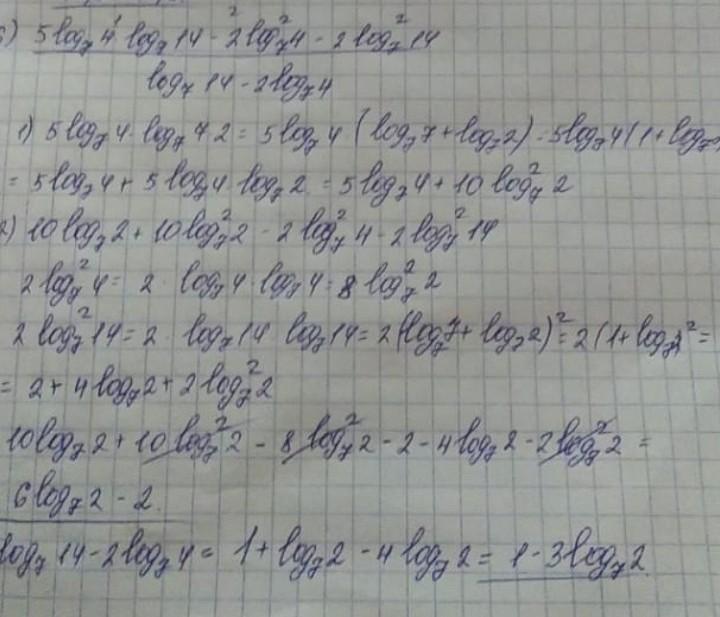 6) 5log₇4·log₇14 - 2log₇²4 - 2log₇²14
log₇14 - 2log₇4
1) 5log₇4·log₇7·2 = 5log₇4(log₇7 + log₇2) = 5log₇4(1 + log₇
= 5log₇4 + 5log₇4·log₇2 = 5log₇4 + 10log₇²2
2) 10log₇2 + 10log₇²2 - 2log₇²4 - 2log₇²14
2log₇²4 = 2·log₇4·log₇4 = 8log₇²2
2log₇²14 = 2·log₇14 log₇14 = 2(log₇7 + log₇2)² = 2(1 + log₇2)² =
= 2 + 4log₇2 + 2log₇²2
10log₇2 + 10log₇²2 - 8log₇²2 - 2 - 4log₇2 - 2log₇²2 =
6log₇2 - 2.
log₇14 - 2log₇4 = 1 + log₇2 - 4log₇2 = 1 - 3log₇2